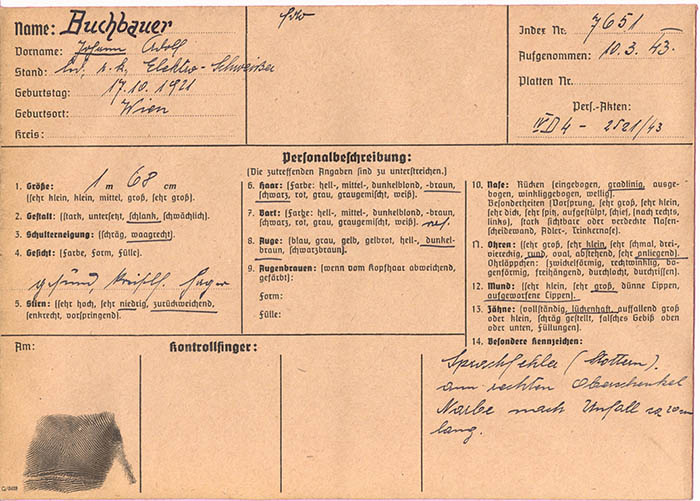 Name: Buchbauer
Vorname: Johann Adolf
Stand: led. r. k. Elektro-Schweißer
Geburtstag: 17.10.1921
Geburtsort: Wien
Kreis:
Index Nr. 7651
Aufgenommen: 10.3.43.
Platten Nr.
Pers.-Akten:
IV D 4 - 2521/43
Personalbeschreibung:
(Die zutreffenden Angaben sind zu unterstreichen.)
1. Größe: 1 m 68 cm
(sehr klein, klein, mittel, groß, sehr groß).
2. Gestalt: (stark, untersetzt, schlank, schwächlich).
3. Schulterneigung: (schräg, waagrecht).
4. Gesicht: (Farbe, Form, Fülle).
gesund,
5. Stirn: (sehr hoch, sehr niedrig, zurückweichend,
senkrecht, vorspringend).
6. Haar: (Farbe: hell-, mittel-, dunkelblond, -braun,
schwarz, rot, grau, graugemischt, weiß).
7. Bart: (Farbe: hell-, mittel-, dunkelblond, -braun,
schwarz, rot, grau, graugemischt, weiß).
8. Auge: (blau, grau, gelb, gelbrot, hell-, dunkel-
braun, schwarzbraun).
9. Augenbrauen: (wenn vom Kopfhaar abweichend,
gefärbt):
Form:
Fülle:
10. Nase: Rücken (eingebogen, gradlinig, ausge-
bogen, winkliggebogen, wellig).
Besonderheiten (Vorsprung, sehr groß, sehr klein,
sehr dick, sehr spitz, aufgestülpt, schief, (nach rechts,
links), stark sichtbare oder verdeckte Nasen-
scheidewand, Adler-, Trinkernase).
11. Ohren: (sehr groß, sehr klein, sehr schmal, drei-,
viereckig, rund, oval, abstehend, sehr anliegend).
Ohrläppchen: (zwickelförmig, rechtwinklig, bo-
genförmig, freihängend, durchlocht, durchrissen).
12. Mund: (sehr klein, sehr groß, dünne Lippen,
aufgeworfene Lippen).
13. Zähne: (vollständig, lückenhaft, auffallend groß
oder klein, schräg gestellt, falsches Gebiß oben
oder unten, Füllungen).
14. Besondere Kennzeichen:
Sprachfehler (Stottern).
am rechten Oberschenkel
Narbe nach Unfall
lang.
Am:
Kontrollfinger: